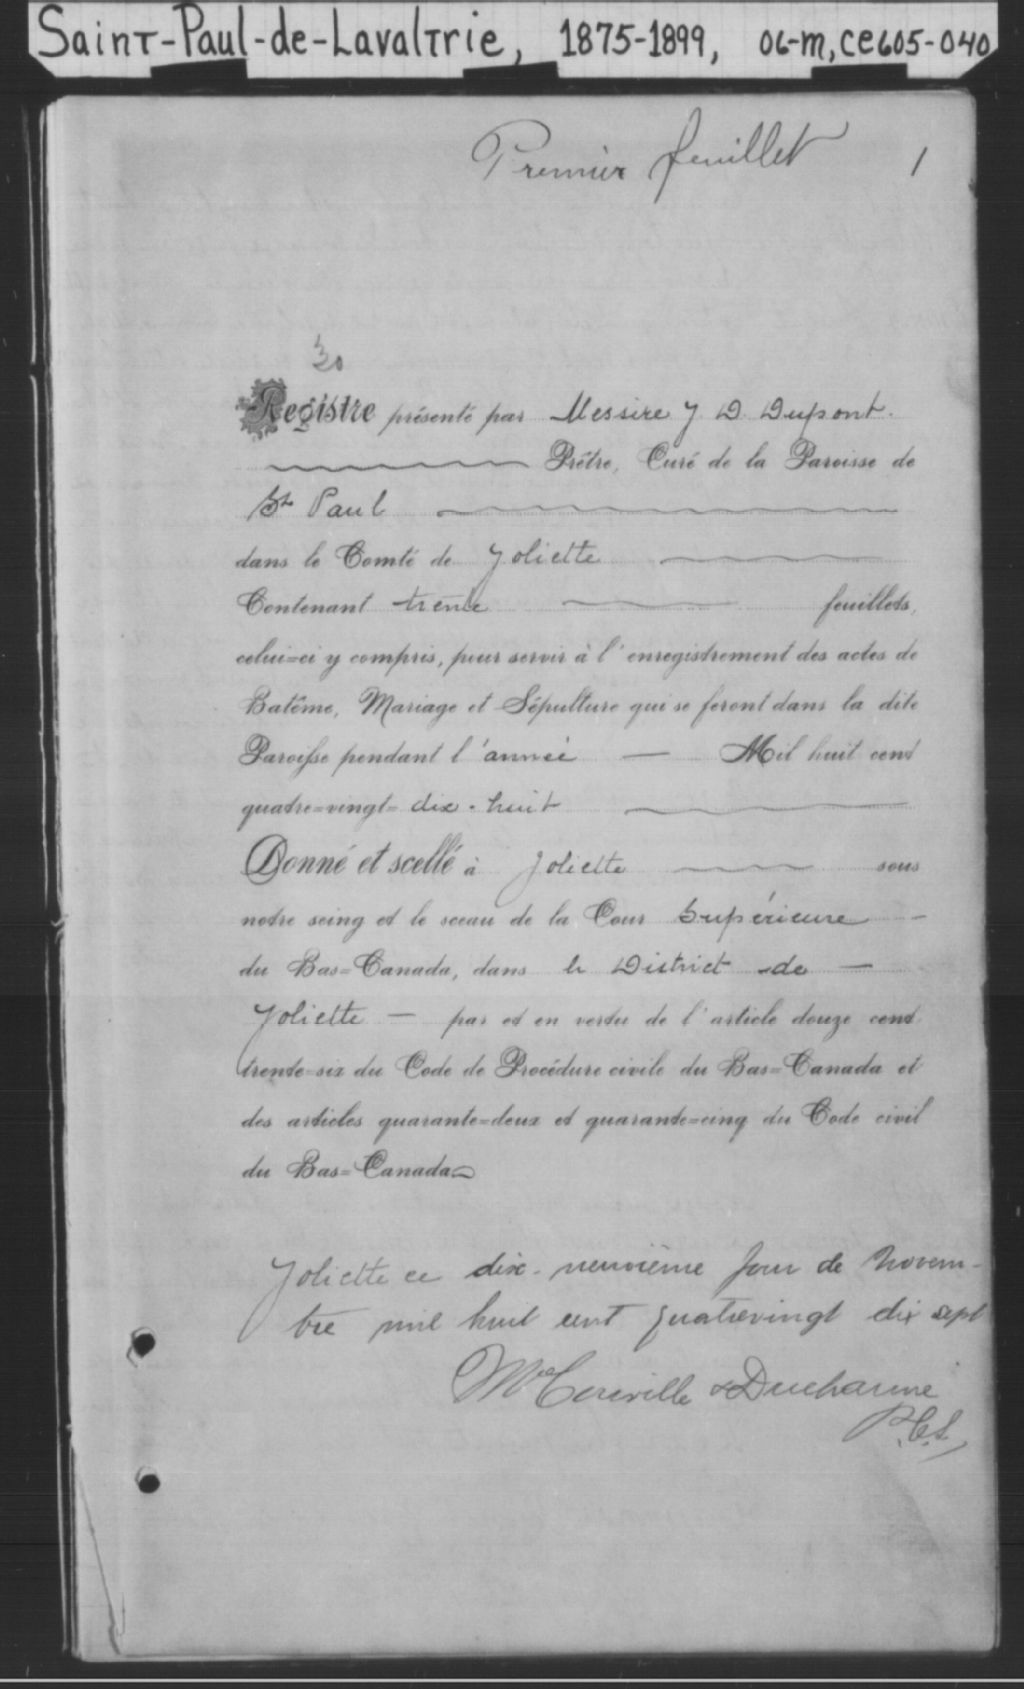 Saint-Paul-de-Lavaltrie, 1875-1899, 06-m, CE605-040
Premier feuillet 1
30
Registre présenté par Messire J. D. Dupont.
Prêtre, Curé de la Paroisse de
St Paul
dans le Comté de Joliette
Contenant trente feuillets,
celui=ci y compris, pour servir à l'enregistrement des actes de
Batême, Mariage et Sépulture qui se feront dans la dite
Paroisse pendant l'année — Mil huit cent
quatre=vingt= dix-huit
Donné et scellé à Joliette sous
notre seing et le sceau de la Cour Supérieure —
du Bas=Canada, dans le District de —
Joliette — par et en vertu de l'article douze cent
trente=six du Code de Procédure civile du Bas=Canada et
des articles quarante=deux et quarante=cinq du Code civil
du Bas=Canada
Joliette ce dix-neuvième jour de Novem-
bre mil huit cent quatrevingt dix sept
& Ducharme
P.C.S.